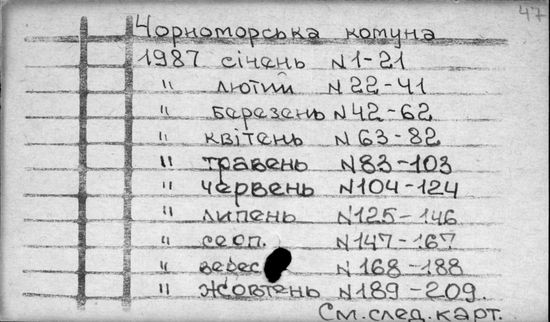 47
Чорноморська комуна
1987 січень N1-21
" лютий N22-41
" березень N42-62
" квітень N63-82
" травень N83-103
" червень N104-124
" липень N125-146
" серп. N147-167
" верес N168-188
" жовтень N189-209.
См. след. карт.